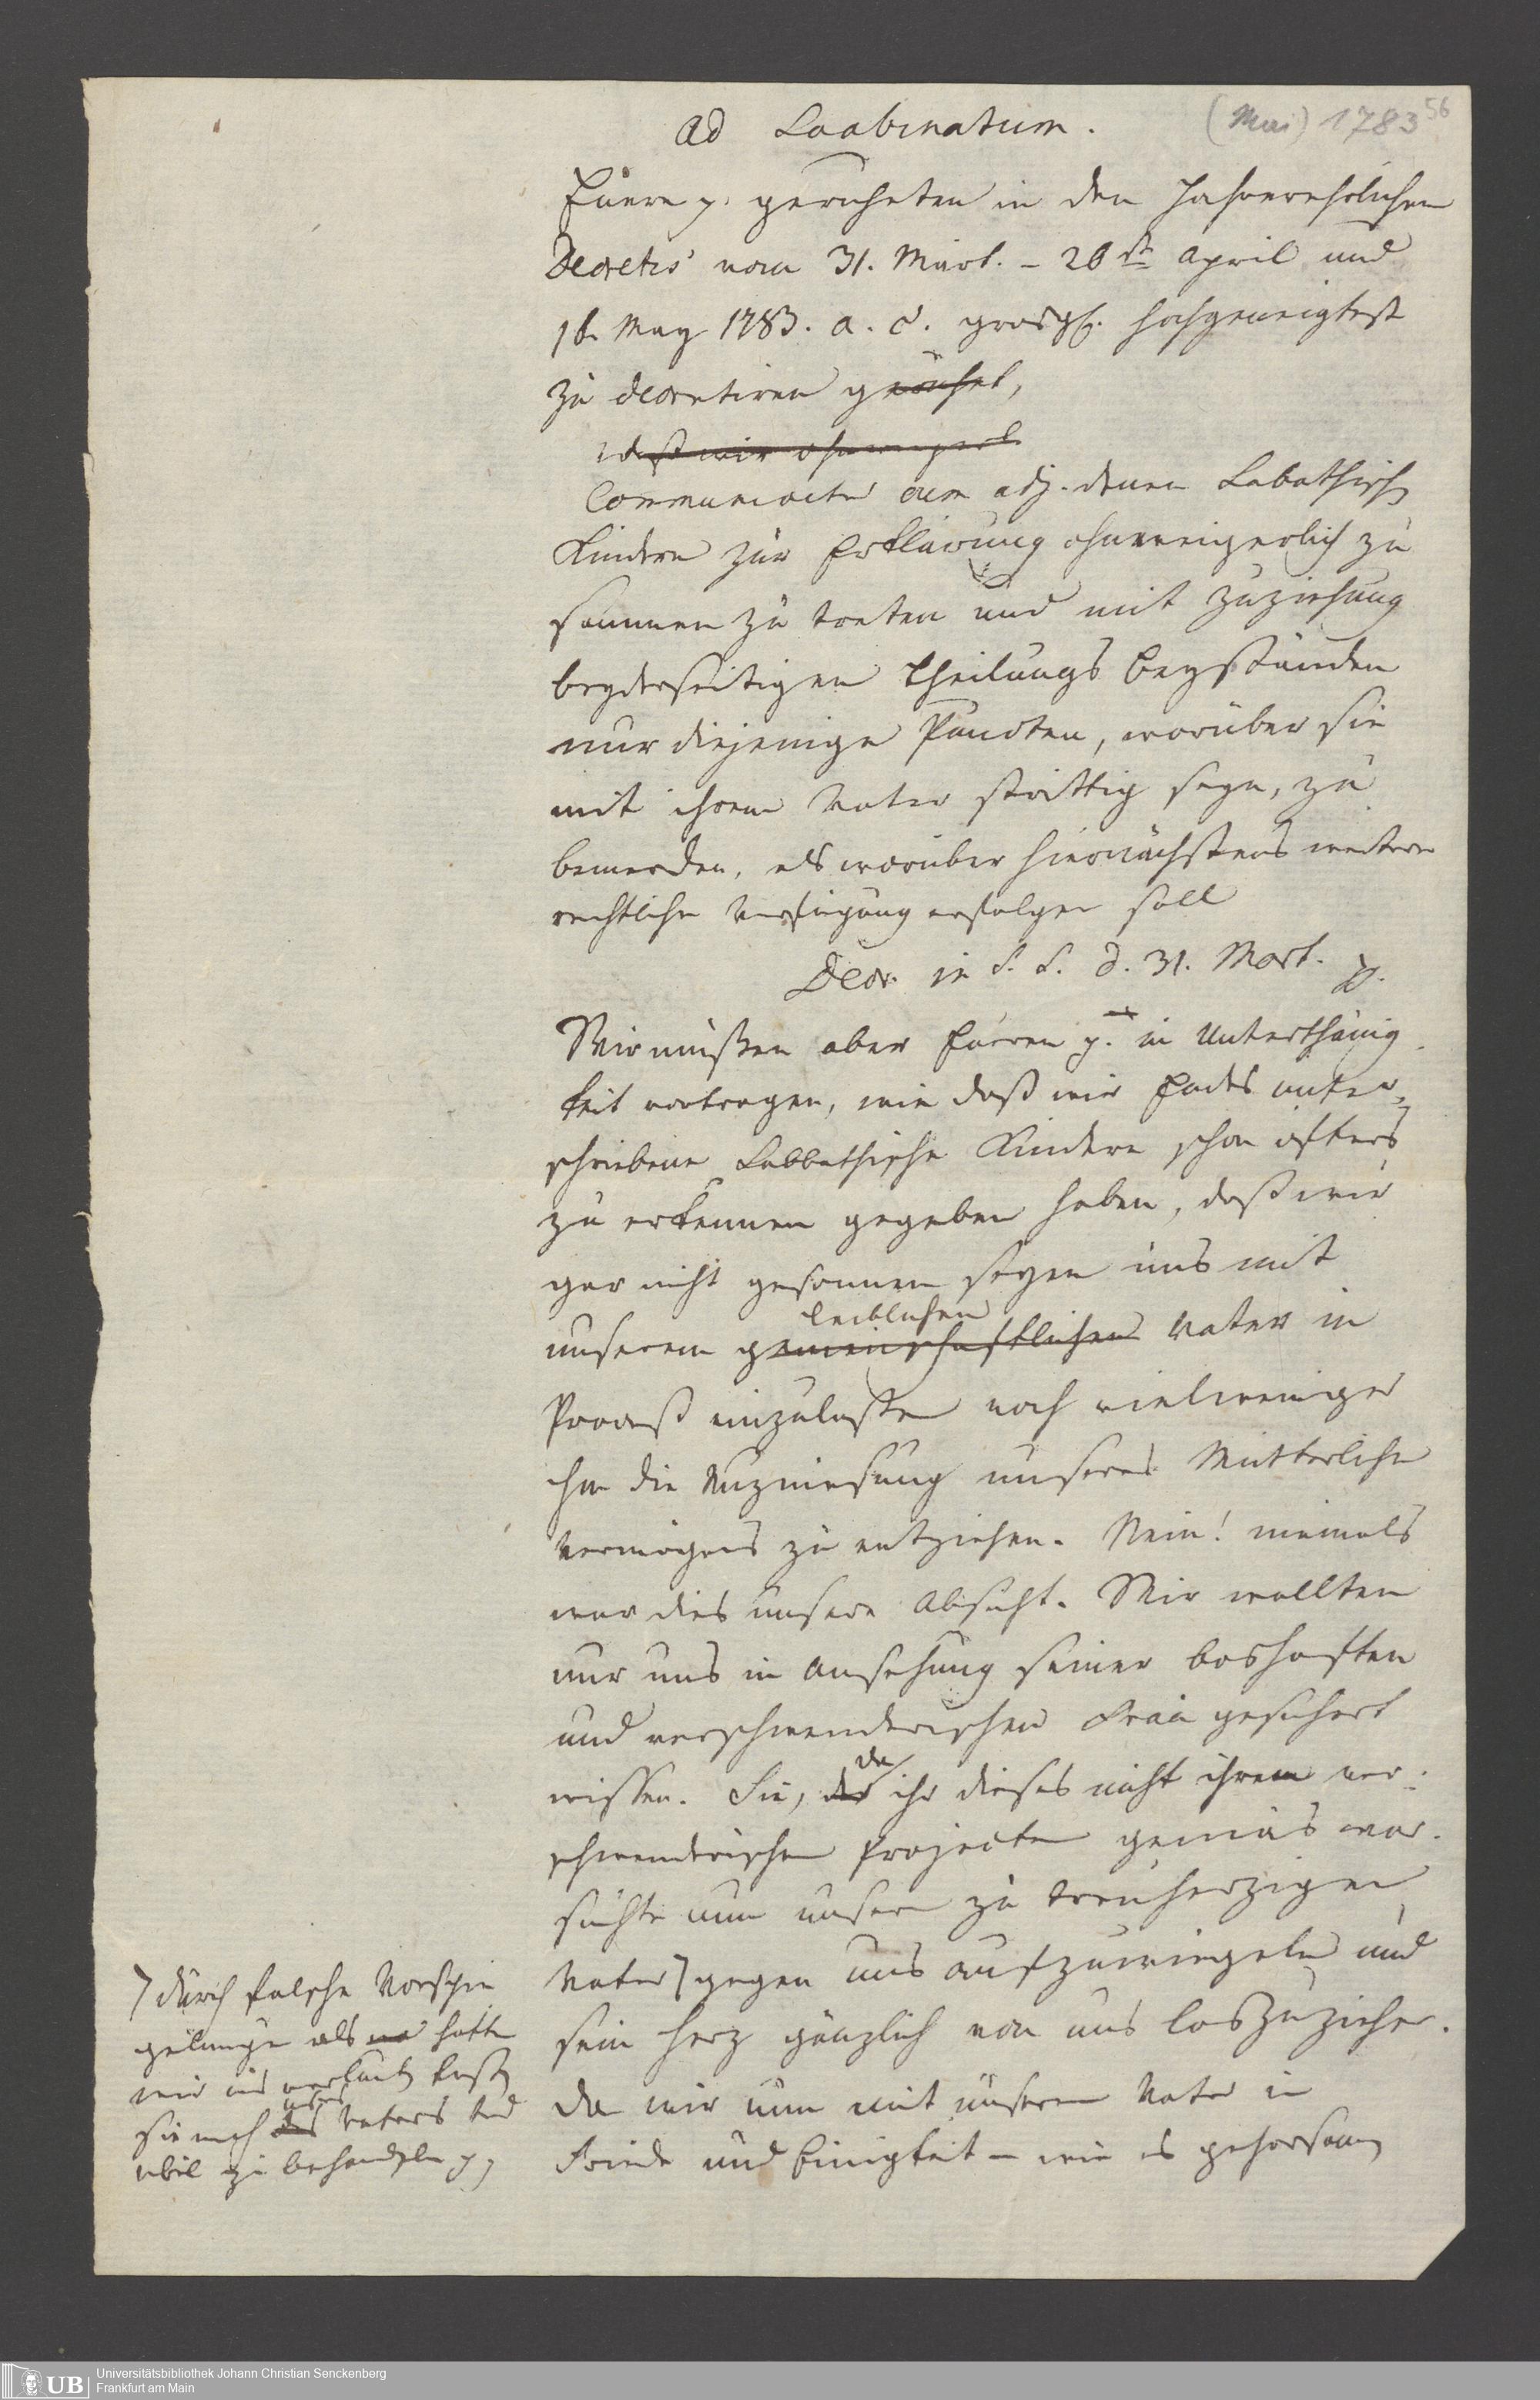 ad Scabinatum.
(Mai) 1783 56
Euere p. geruheten in den Hochverehrlichen
Decretis vom 31. Märt. - 28t April und
16. May 1783. a. c. grosg. hochgeneigtest
zu decretiren geruhet,
daß wir ohnweigerl
Communicetur cum adj. denen Labathisch
Kindern zur Erklärung ohnweigerlich zu
sammen zu treten und mit Zuziehung
beyderseitigen Theilungs Beyständen
nur diejenige Puncten, worüber sie
mit ihrem Vater strittig seyn, zu
bemerken, als worüber hiernächstens weitere
rechtliche Verfügung erfolgen soll
Decr. in S. S. d. 31. Mart. p.
Wir müßen aber Eueren p. in Unterthänig
keit vortragen, wie daß wir Endes unter-
schriebene Labbathische Kindere schon öfters
zu erkennen gegeben haben, daß wir
gar nicht gesonnen seyen uns mit
leiblichen
unserem gemeinschaftlichen Vater in
Proceß einzulaßen noch vielweniger
ihm die Nuzniesung unseres Mütterliche
Vermögens zu entziehen. Nein! niemals
war dies unsere Absicht. Wir wollten
nur uns in Ansehung seiner boshaften
und verschwenderischen Frau gesichert
wissen. Sie, der da ihr dieses nicht ihrem ver-
schwenderischen Projecte gemäs war.
suchte nun unsern zu treuherzigen
Vater gegen uns aufzuwiegeln und
sein Herz gänzlich von uns loszuziehen.
Da wir nun mit unserem Vater in
Friede und Einigkeit - wie es gehorsamen
durch falsche Vorspie
gelunge als hatte
wir uns verlauten laßen
sie nach des unsers Vaters Tod
übel zu behandeln p,
Universitätsbibliothek Johann Christian Senckenberg
Frankfurt am Main
UB